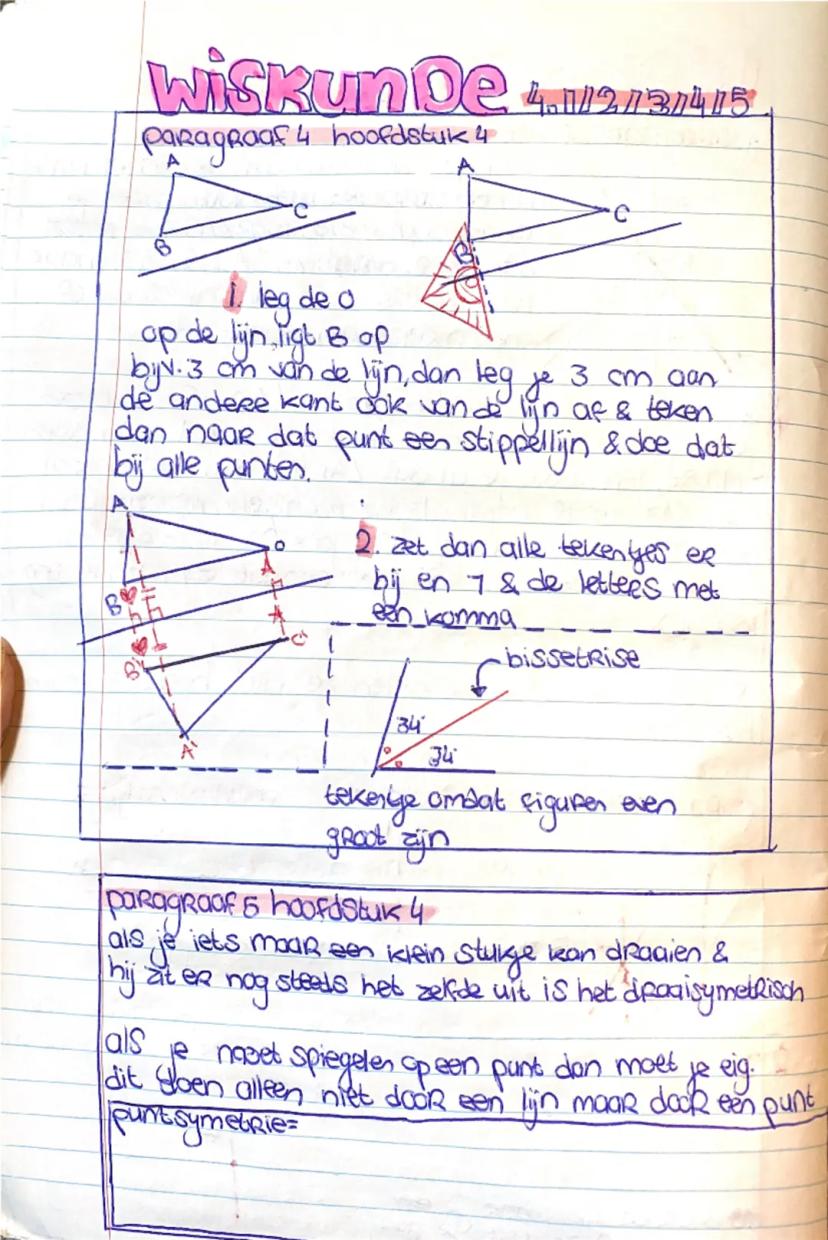 wiskunde 4.1/2/3/4/5
paragraaf 4 hoofdstuk 4
A
C
B
A
C
B
1. leg de 0
op de lijn, ligt B op
bijv. 3 cm van de lijn, dan leg je 3 cm aan
de andere kant ook van de lijn af & teken
dan naar dat punt een stippellijn & doe dat
bij alle punten.
A
B
2. zet dan alle tekentjes er
bij en 7 & de letters met
een komma
C'
B'
A'
bissetrise
34°
34°
tekentje omdat figuren even
groot zijn
paragraaf 5 hoofdstuk 4
als je iets maar een klein stukje kan draaien &
hij zit er nog steeds het zelfde uit is het draaisymetrisch
als je spiegelen op een punt dan moet je eig.
dit doen alleen niet door een lijn maar door een punt
puntsymetrie=